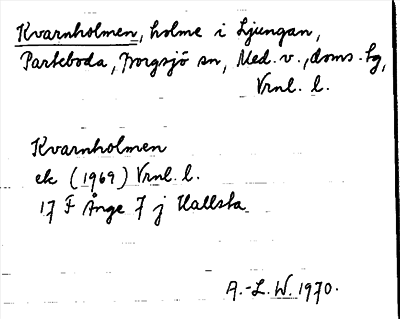 Kvarnholmen, holme i Ljungan,
Parteboda, Borgsjö sn, Med. v., doms.-sg,
Vrnl. l.
Kvarnholmen
ek (1969) Vrnl. l.
17 F Ånge 7 j Hallsta
A.-L. W. 1970.